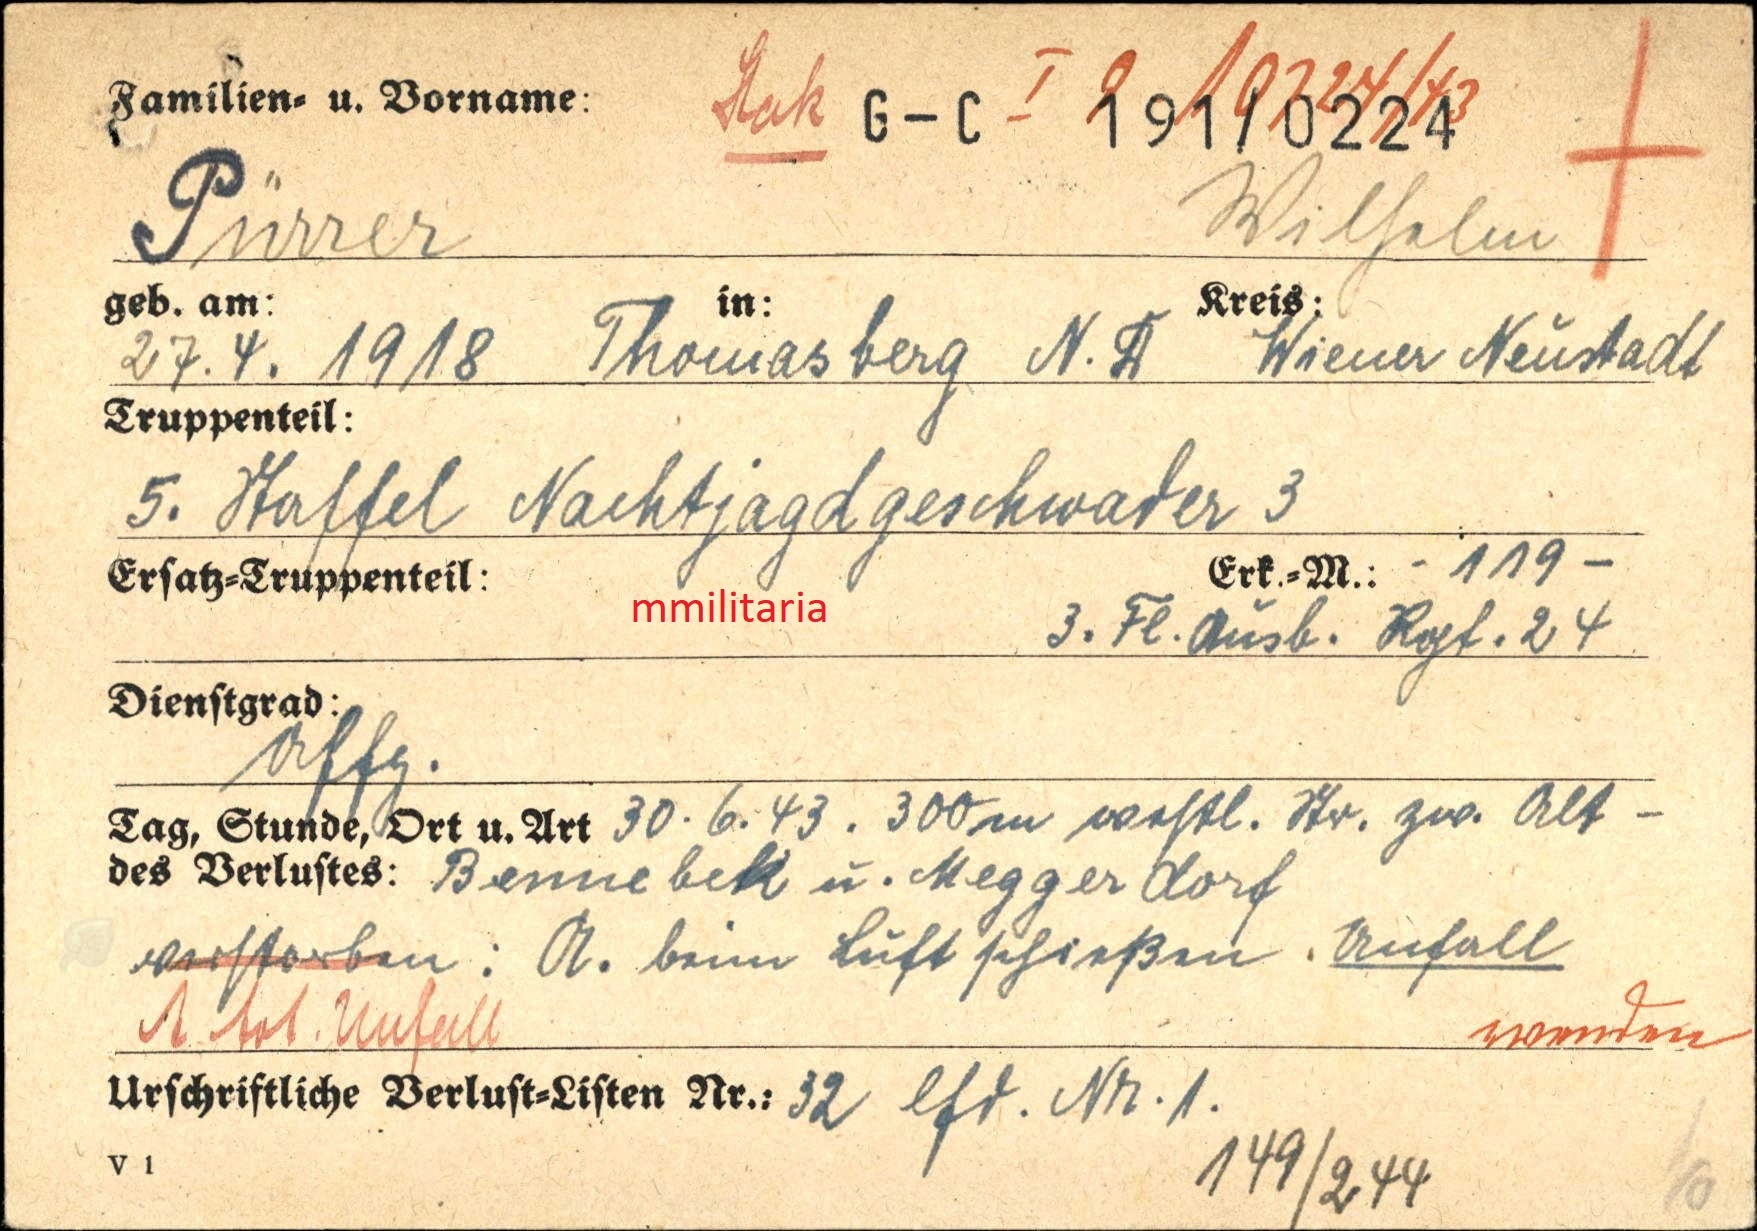 Familien- u. Vorname: G-C 191/0224
Pürrer Wilhelm
geb. am: in: Kreis:
27.4.1918 Thomasberg N.D Wiener Neustadt
Truppenteil:
5. Staffel Nachtjagdgeschwader 3
Ersatz-Truppenteil: Erk.-M.: - 119 -
mmilitaria
3. Fl. Ausb. Rgt. 24
Dienstgrad:
Uffz.
Tag, Stunde, Ort u. Art 30.6.43. 300 m westl. Str. zw. Alt-
des Verlustes: Bennebek u. Meggerdorf
verstorben: A. beim Luftschießen. Unfall
1 tot. Unfall
wenden
Urschriftliche Verlust-Listen Nr.: 32 lfd. Nr. 1.
149/244
V 1